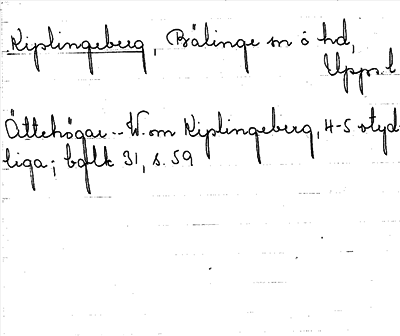 Kiplingeberg, Bälinge sn ô hd,
Upps. l
Ättehögar.- W. om Kiplingeberg, 4-5 otyd-
liga; balk 31, s. 59